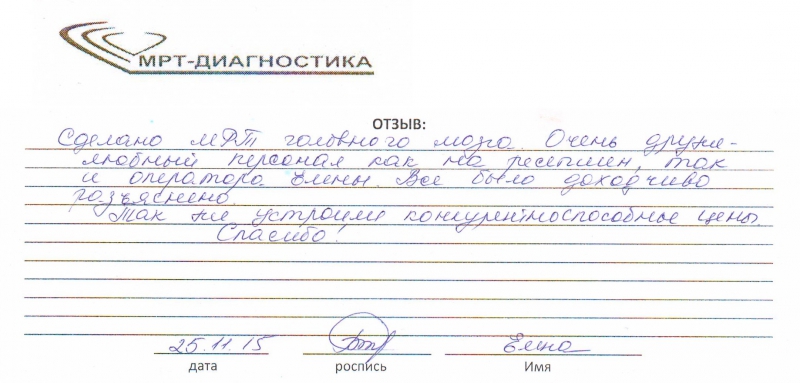 МРТ-ДИАГНОСТИКА
ОТЗЫВ:
Сделано МРТ головного мозга. Очень друже-
любный персонал как на ресепшен, так
и оператора Елены. Все было доходчиво
разъяснено.
Так же устроили конкурентноспособные цены.
Спасибо!
25.11.15 Елена
дата роспись Имя